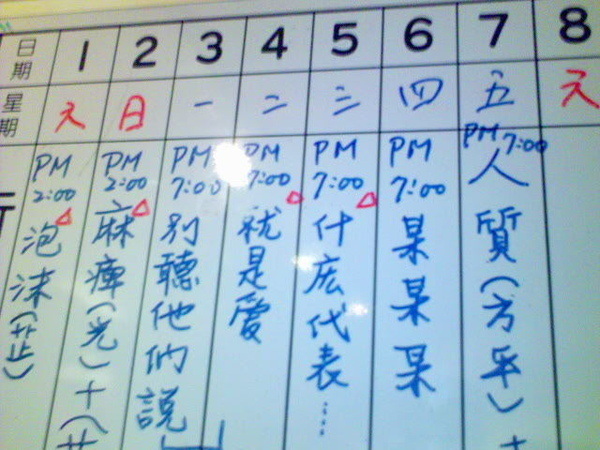 日期 1 2 3 4 5 6 7 8
星期 六 日 一 二 三 四 五 六
PM 2:00
泡沫(芷)
PM 2:00
麻痺(光)+(
PM 7:00
別聽他們說
PM 7:00
就是愛
PM 7:00
什庅代表…
PM 7:00
某某某
PM 7:00
人質(方平)+